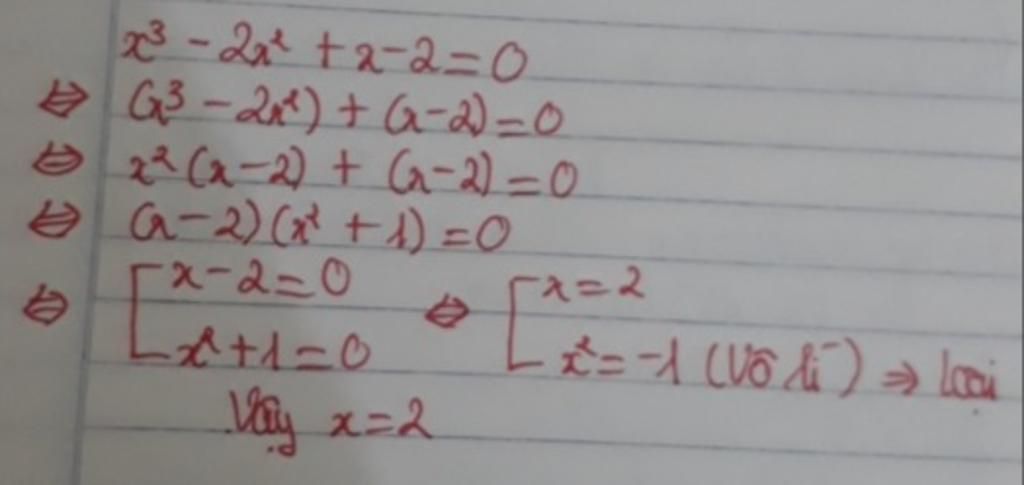 x³ - 2x² + x - 2 = 0
⇔ (x³ - 2x²) + (x - 2) = 0
⇔ x² (x - 2) + (x - 2) = 0
⇔ (x - 2) (x² + 1) = 0
⇔ [ x - 2 = 0 ⇔ [ x = 2
x² + 1 = 0 x² = -1 (Vô lí) ⇒ loại
Vậy x = 2